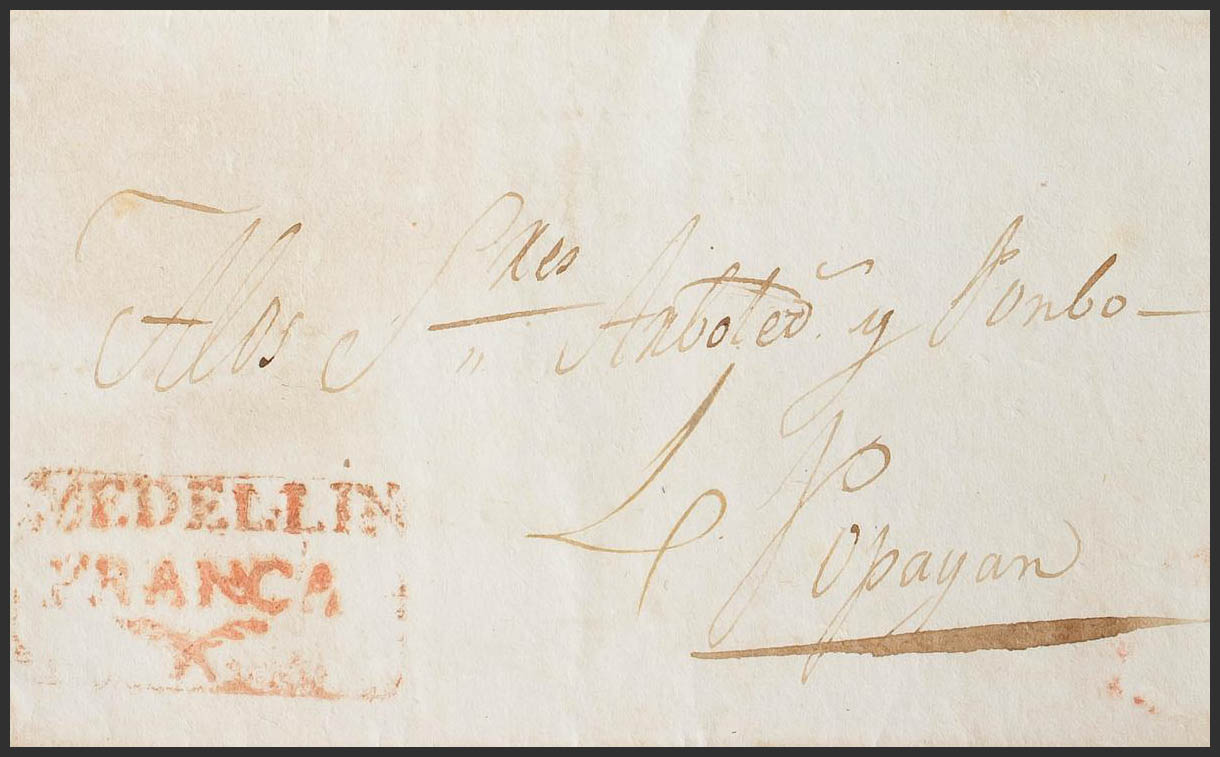 A los S.res Arboled.a y Ponbo
Popayan
MEDELLIN
FRANCA